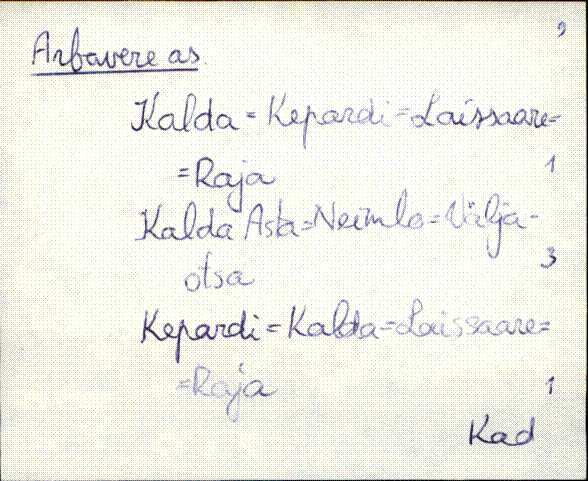 9
Arbavere as.
Kalda = Kepardi = Laissaare =
= Raja 1
Kalda Asta = Neimla = Välja-
otsa 3
Kepardi = Kalda = Laissaare =
= Raja 1
Kad